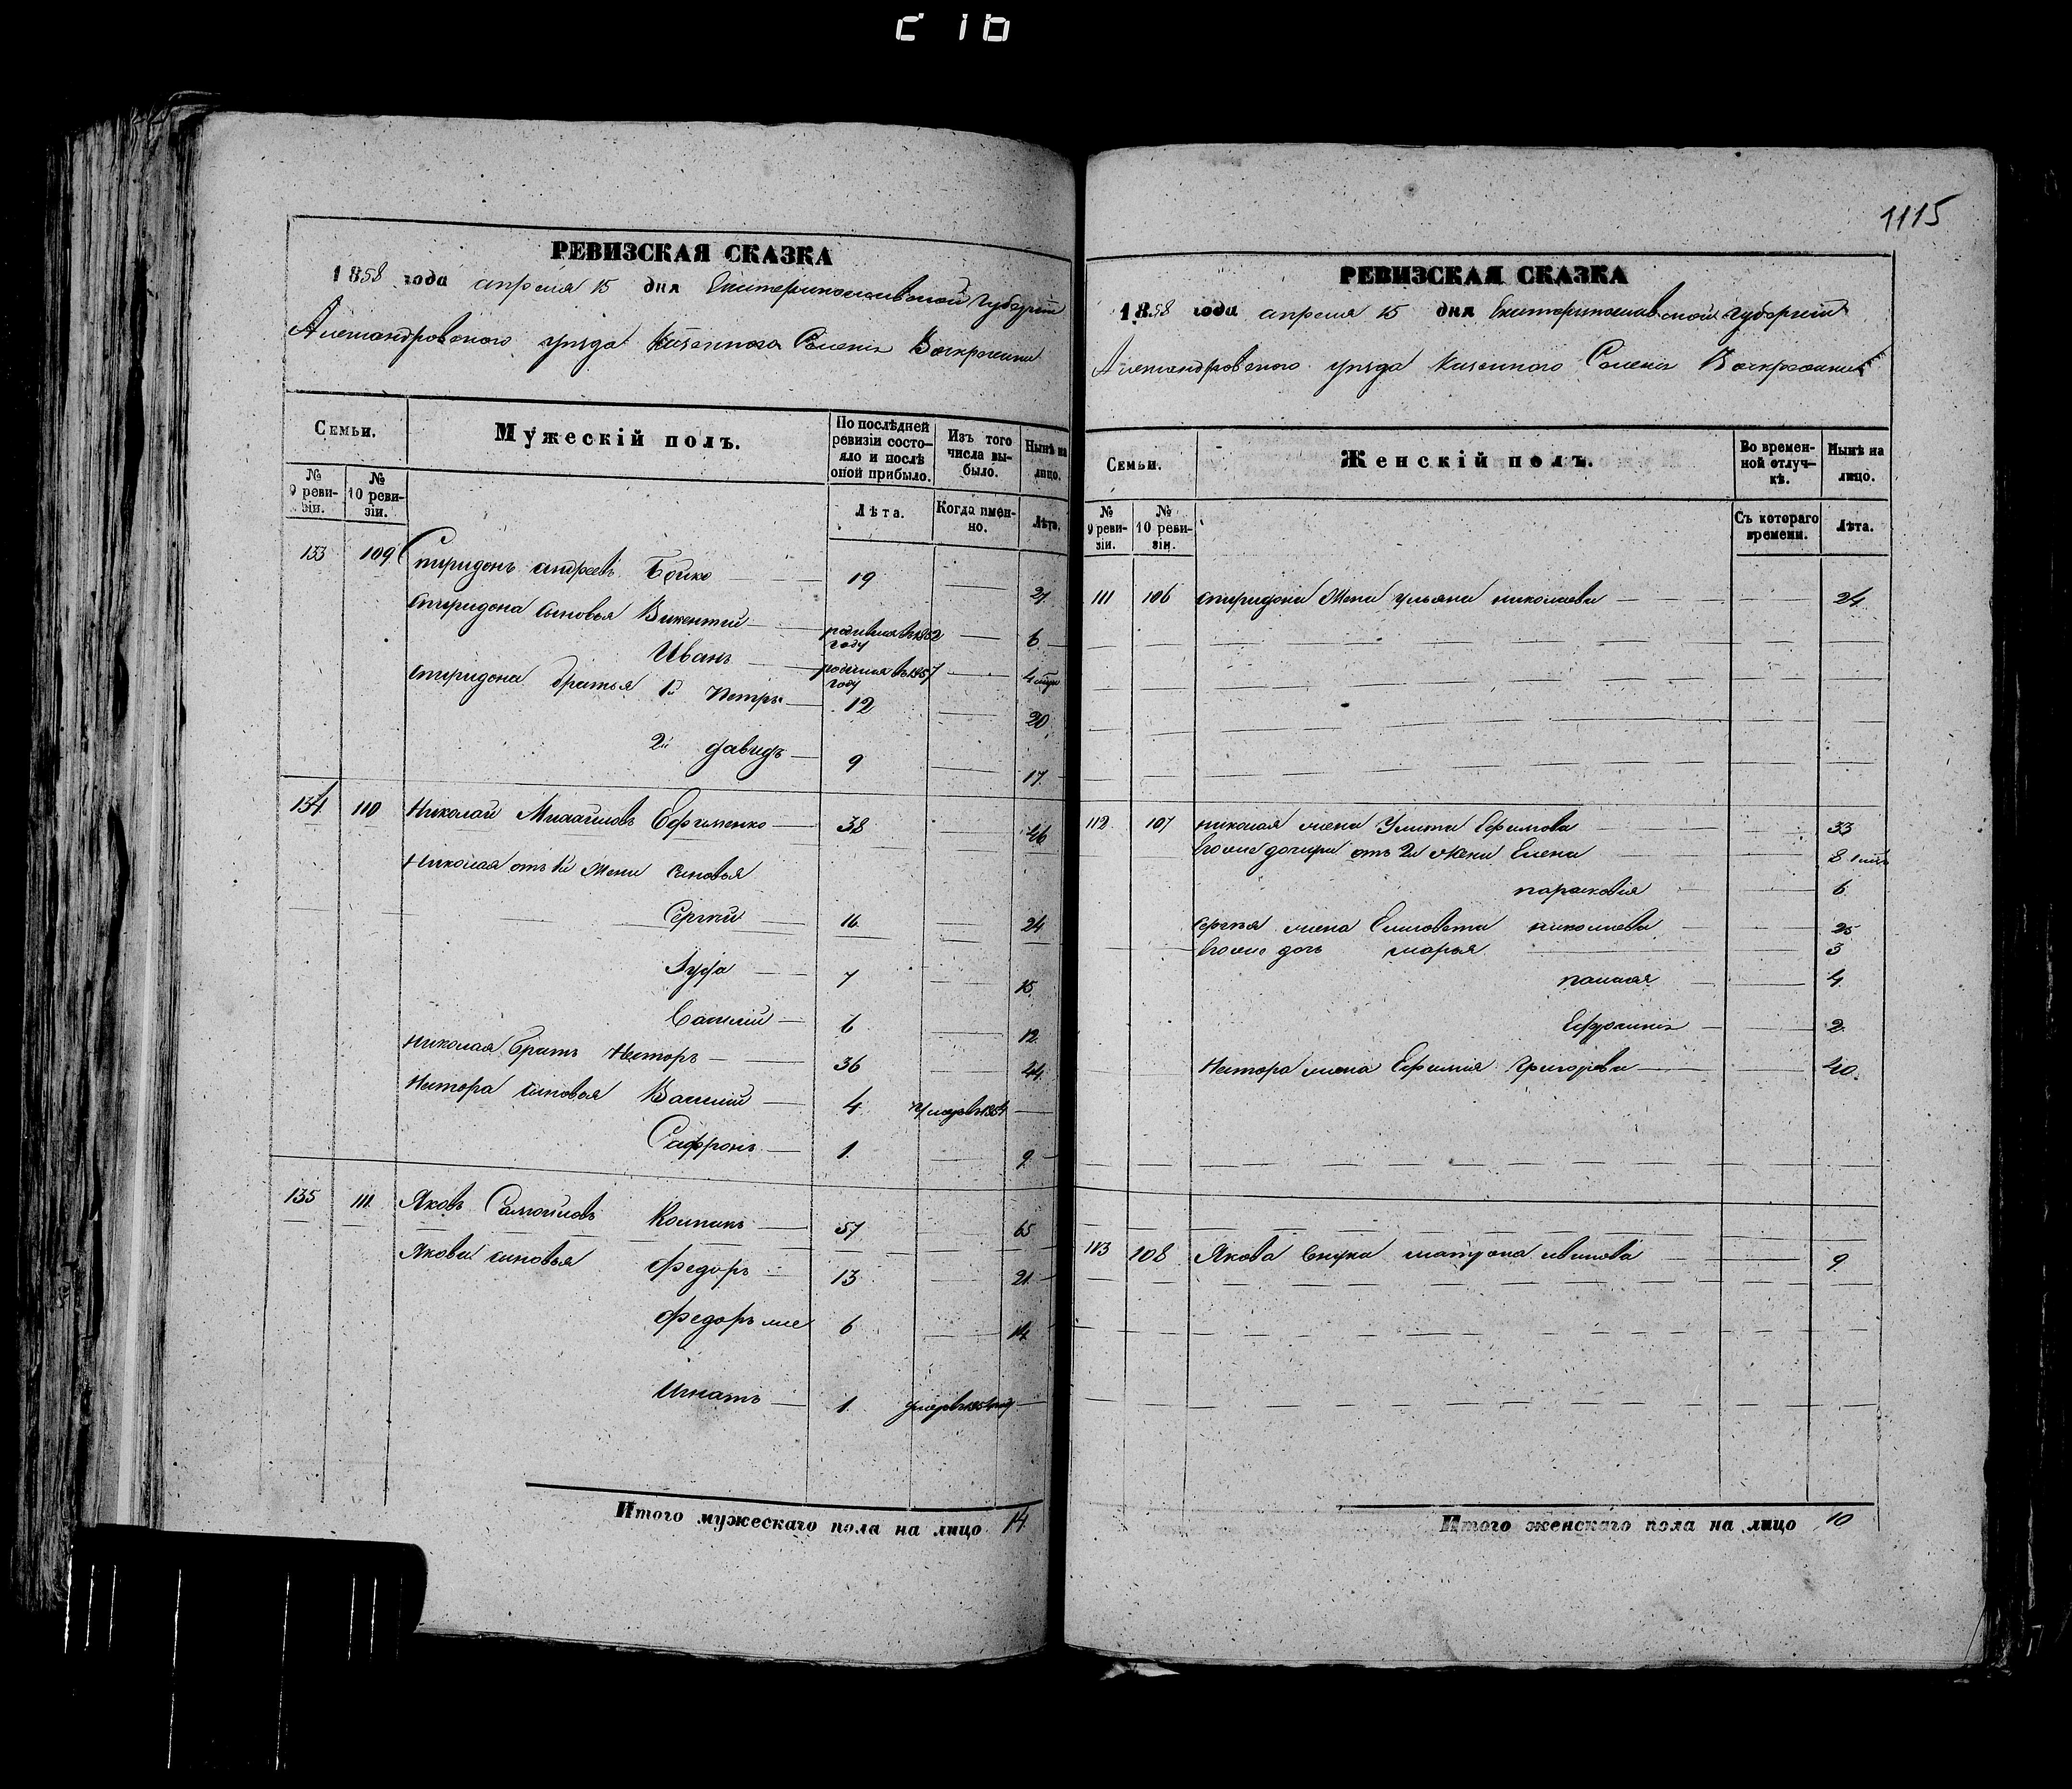 1115
РЕВИЗСКАЯ СКАЗКА
1858 года апреля 15 дня Екатеринославской губерніи
Александровскаго уѣзда Казеннаго Селенія Воскресенки
Семьи.
Мужескій полъ.
По послѣдней ревизіи состояло и послѣ оной прибыло.
Изъ того числа выбыло.
Нынѣ на лицо.
№ 9 ревизіи.
№ 10 ревизіи.
Лѣта.
Когда именно.
Лѣта.
133 109 Спиридонъ Андреевъ Бойко 19
Спиридона сыновья Викентій родился въ 1852 году 6
Иванъ родился въ 1857 году 4
Спиридона братья 1й Петръ 12 20
2й Давидъ 9 17
134 110 Николай Михайловъ Ефименко 38 46
Николая отъ 1й жены сыновья
Сергѣй 16 24
7 15
6
Николая братъ Несторъ 36 44
Нестора сыновья Василій 4 умеръ 1854
Сафронъ 1 9
135 111 Яковъ Самойловъ 57 65
Якова сыновья Федоръ 13 21
Федоръ же 6 14
Игнатъ 1 умеръ
Итого мужескаго пола на лицо 14
РЕВИЗСКАЯ СКАЗКА
1858 года апреля 15 дня Екатеринославской губерніи
Александровскаго уѣзда Казеннаго Селенія Воскресенки
Семьи.
Женскій полъ.
Во временной отлучкѣ.
Нынѣ на лицо.
№ 9 ревизіи.
№ 10 ревизіи.
Съ котораго времени.
Лѣта.
111 106 Спиридона жена Ульяна Николаева 24
112 107 Николая жена Улита Ефимова 33
Его же дочери отъ 2й жены Елена 8
Парасковія 6
Сергѣя жена Елисавета Николаева 25
Его же дочь Марья 3
4
Ефросинія 2
Нестора жена Ефимія Григорьева 40
113 108 Якова внука Матрона 9
Итого женскаго пола на лицо 10